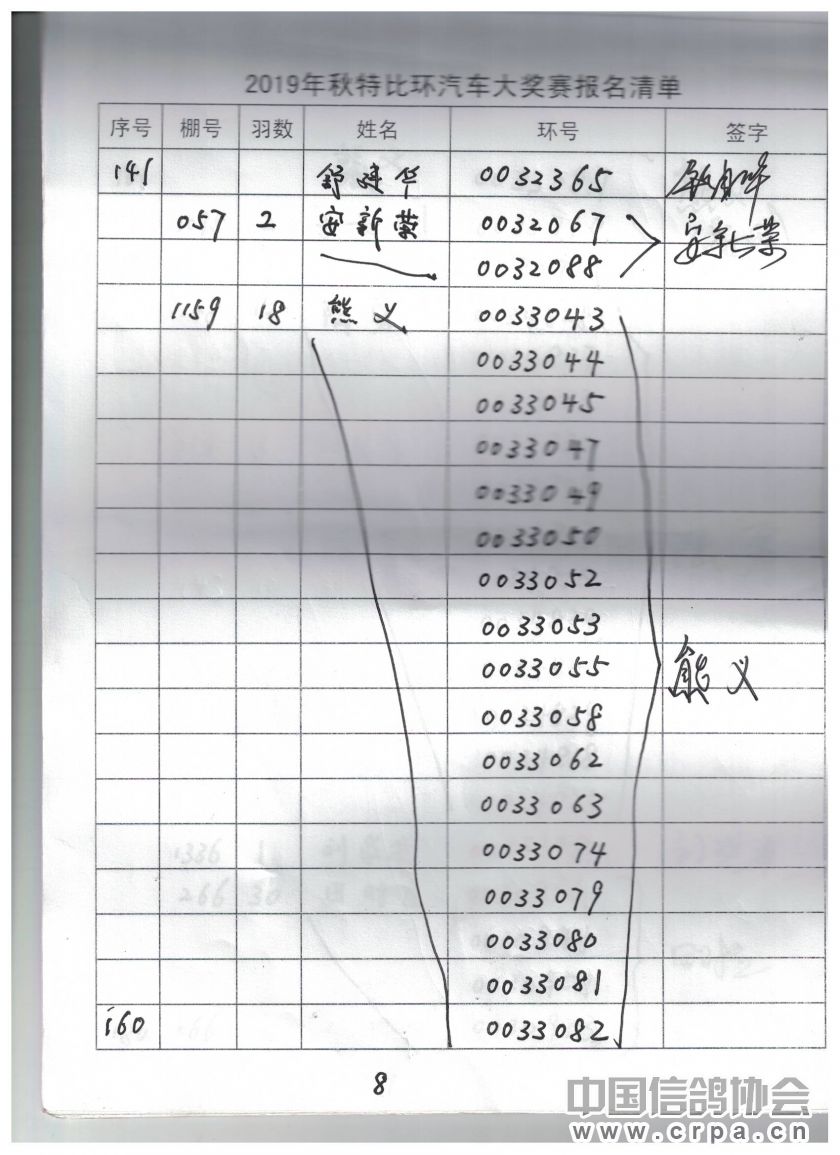 2019年秋特比环汽车大奖赛报名清单
序号 棚号 羽数 姓名 环号 签字
141 舒建华 0032365
057 2 安新荣 0032067 安新荣
0032088
1159 18 熊义 0033043
0033044
0033045
0033047
0033049
0033050
0033052
0033053
0033055 熊义
0033058
0033062
0033063
0033074
0033079
0033080
0033081
160 0033082
8
中国信鸽协会
www.crpa.cn